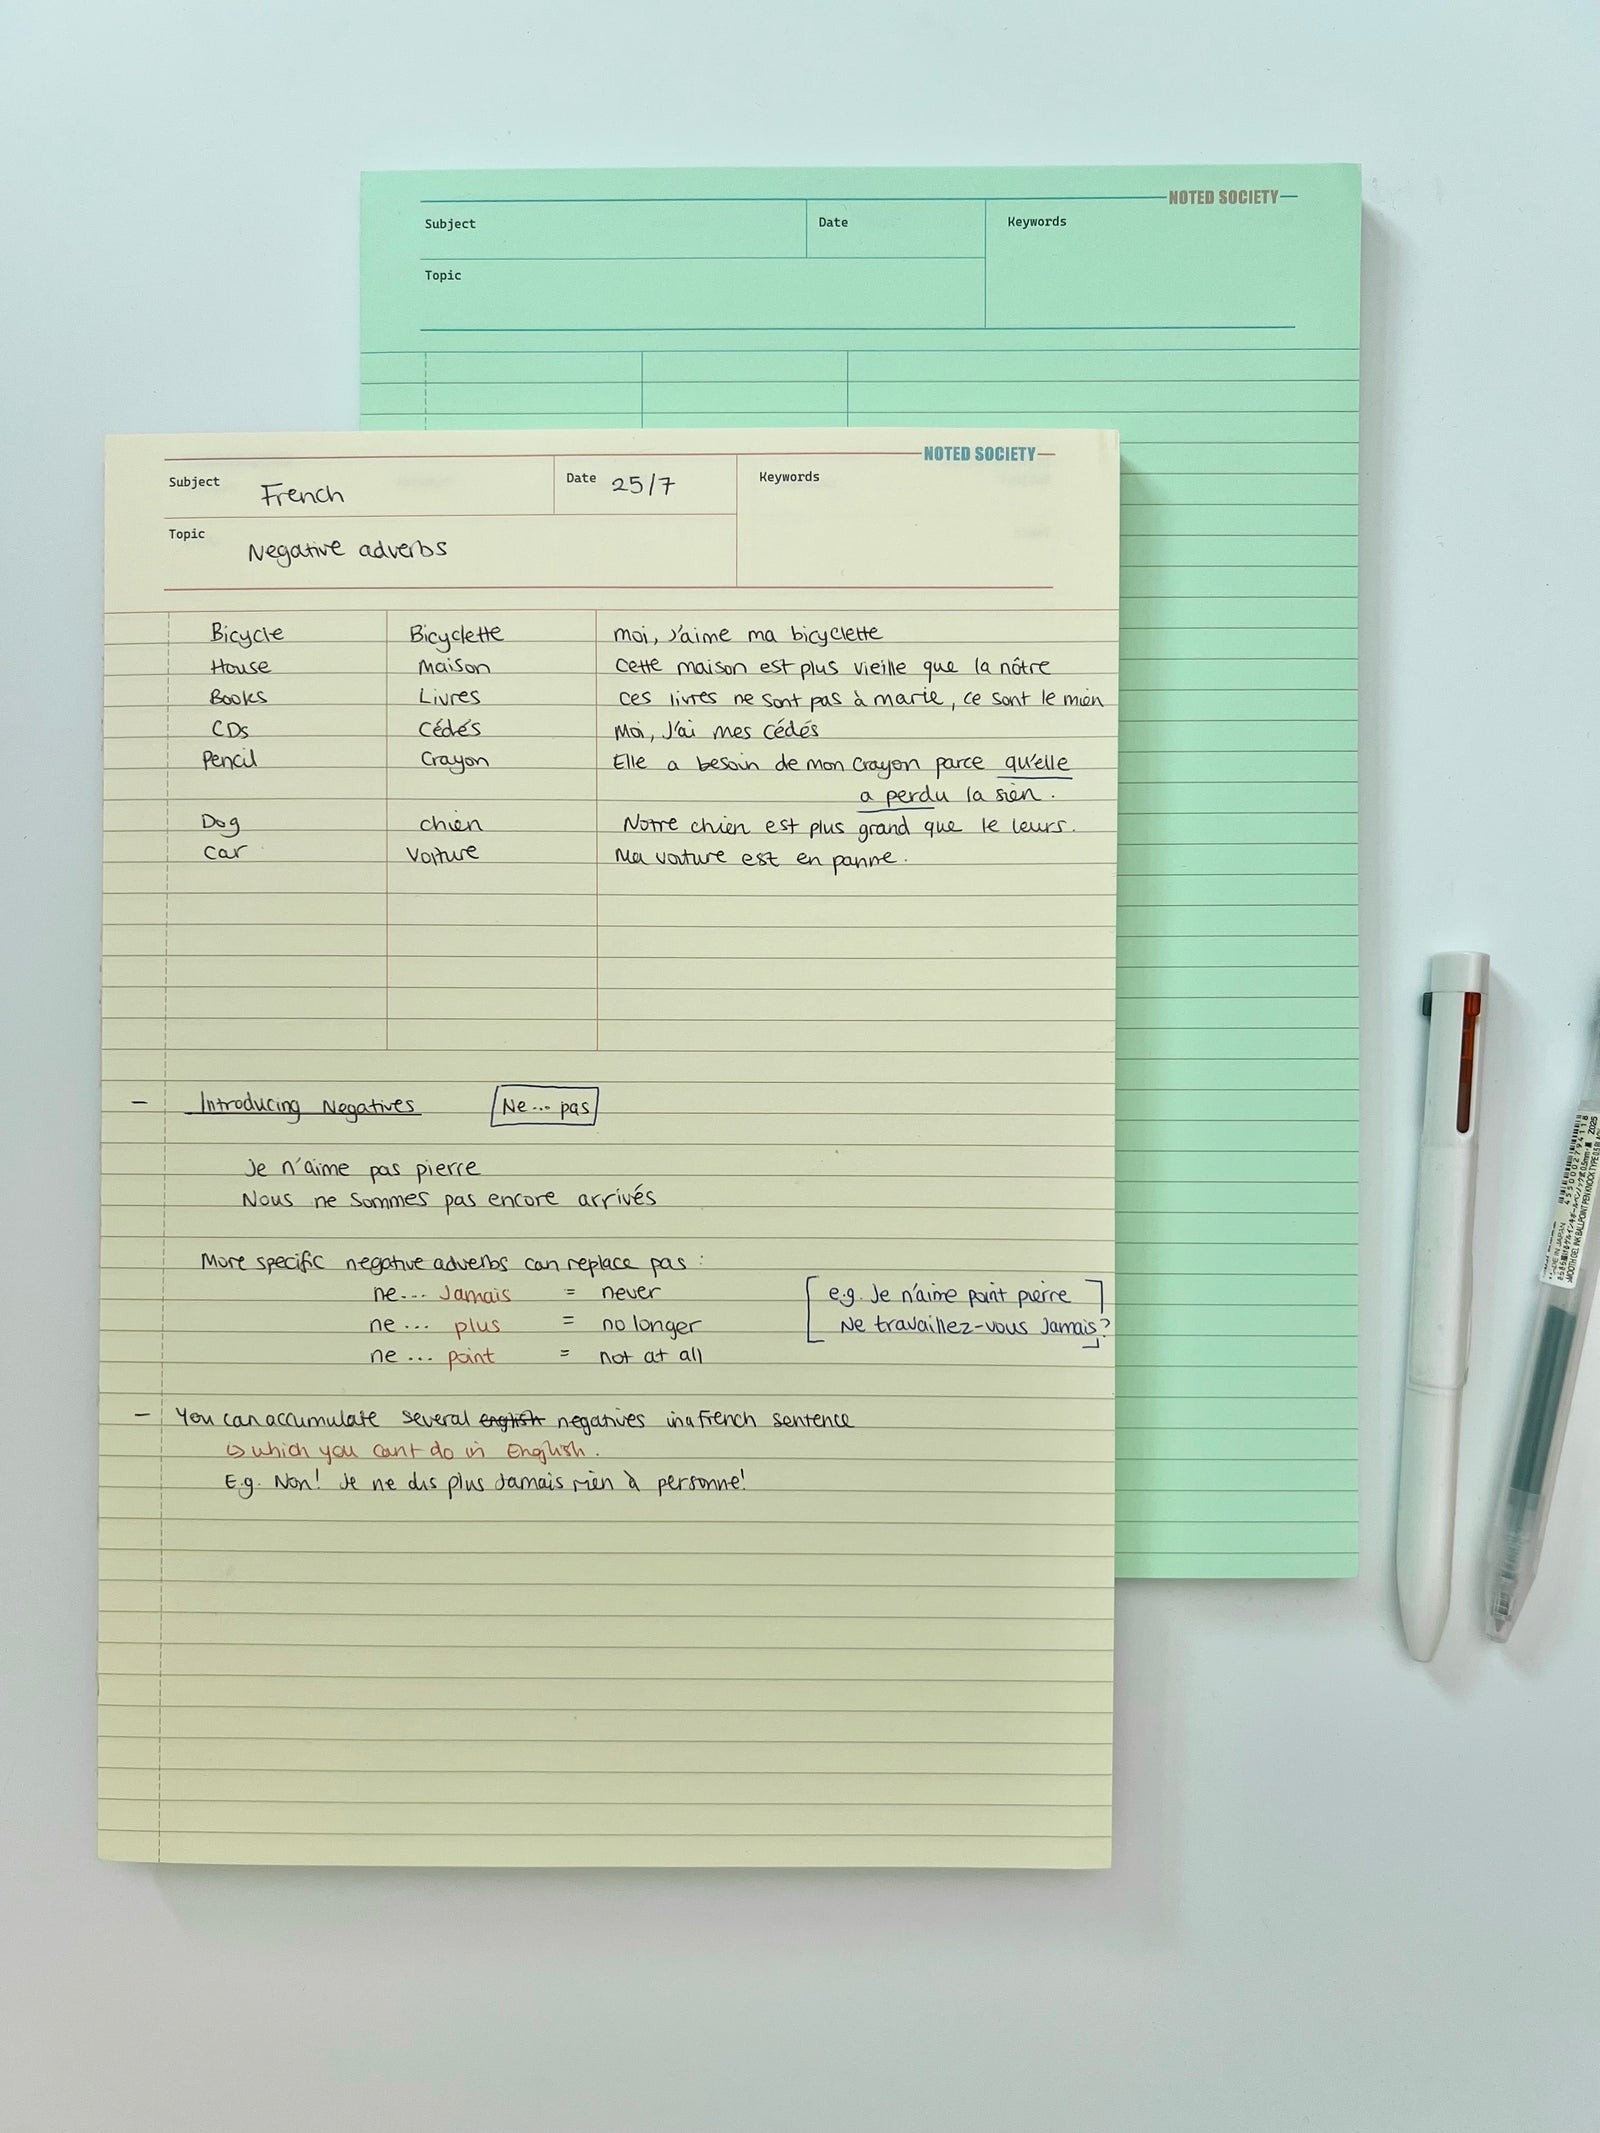 NOTED SOCIETY
Subject Date Keywords
Topic
NOTED SOCIETY
Subject French Date 25/7 Keywords
Topic Negative adverbs
Bicycle Bicyclette moi, j'aime ma bicyclette
House Maison cette maison est plus vieille que la nôtre
Books Livres ces livres ne sont pas à marie, ce sont le mien
CDs Cédés Moi, J'ai mes cédés
Pencil Crayon Elle a besoin de mon crayon parce qu'elle
a perdu la sien.
Dog chien Notre chien est plus grand que le leurs.
Car Voiture Ma voiture est en panne.
- Introducing Negatives Ne... pas
Je n'aime pas pierre
Nous ne sommes pas encore arrivés
More specific negative adverbs can replace pas:
ne... Jamais = never
ne... plus = no longer
ne... point = not at all
e.g. Je n'aime point pierre
Ne travaillez-vous Jamais?
- You can accumulate several english negatives in a french sentence
↳ which you cant do in English.
E.g. Non! Je ne dis plus Jamais rien à personne!
4550002794118
MADE IN JAPAN